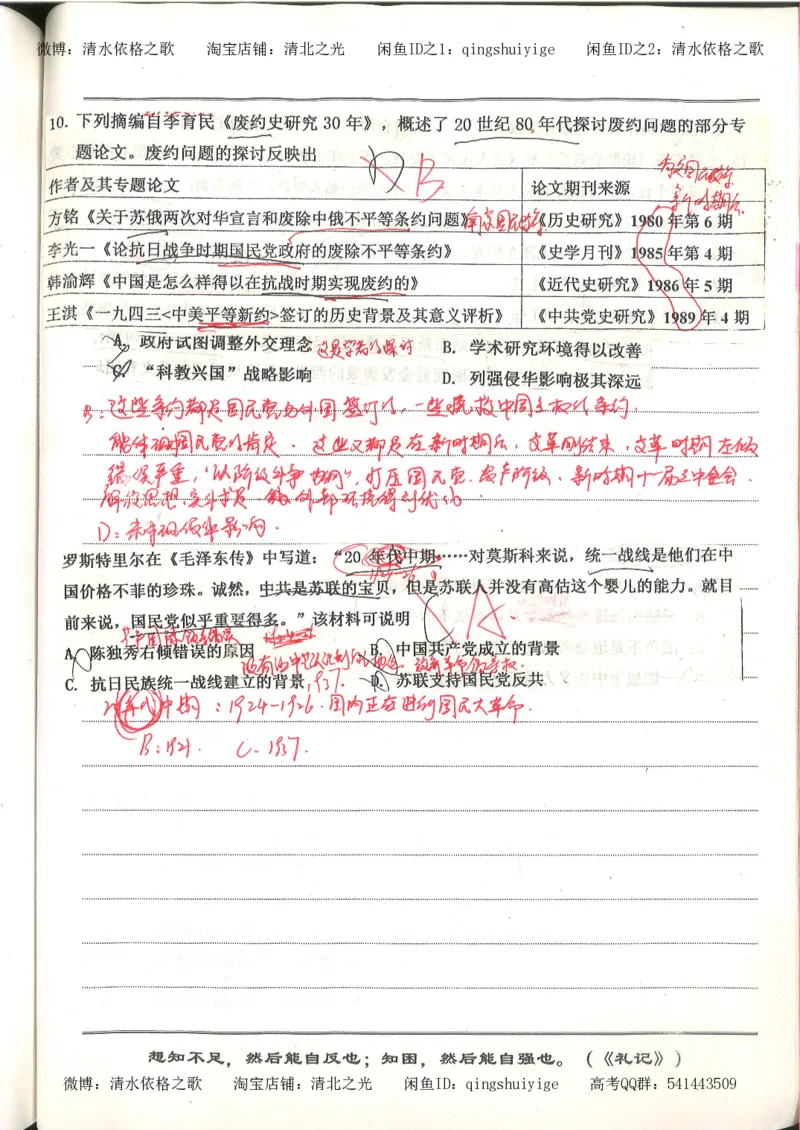 微博：清水依格之歌 淘宝店铺：清北之光 闲鱼ID之1：qingshuiyige 闲鱼ID之2：清水依格之歌
10. 下列摘编自李育民《废约史研究 30 年》，概述了 20 世纪 80 年代探讨废约问题的部分专
题论文。废约问题的探讨反映出
B
作者及其专题论文 论文期刊来源
新时期后
方铭《关于苏俄两次对华宣言和废除中俄不平等条约问题》 南京国民政府 《历史研究》1980 年第 6 期
李光一《论抗日战争时期国民党政府的废除不平等条约》 《史学月刊》1985 年第 4 期
韩渝辉《中国是怎么样得以在抗战时期实现废约的》 《近代史研究》1986 年 5 期
王淇《一九四三<中美平等新约>签订的历史背景及其意义评析》 《中共党史研究》1989 年 4 期
A. 政府试图调整外交理念 这是学者的探讨 B. 学术研究环境得以改善
C. “科教兴国”战略影响 D. 列强侵华影响极其深远
B：这些条约都是国民党与外国签订的，一些挽救中国主权的条约，
能体现国民党的肯定．这些又都是在新时期后，文革刚结束，文革时期左倾
错误严重，“以阶级斗争为纲”，打压国民党、资产阶级．新时期十一届三中全会．
解放思想，实事求是
D：未体现侵华影响．
罗斯特里尔在《毛泽东传》中写道：“20 年代中期……对莫斯科来说，统一战线是他们在中
1924-26
国价格不菲的珍珠。诚然，中共是苏联的宝贝，但是苏联人并没有高估这个婴儿的能力。就目
前来说，国民党似乎重要得多。”该材料可说明
A
A. 陈独秀右倾错误的原因 B. 中国共产党成立的背景
C. 抗日民族统一战线建立的背景 1937. D. 苏联支持国民党反共
20年代中期：1924-1926．国内正在进行国民大革命．
B：1921． C．1937．
想知不足，然后能自反也；知困，然后能自强也。（《礼记》）
微博：清水依格之歌 淘宝店铺：清北之光 闲鱼ID：qingshuiyige 高考QQ群：541443509